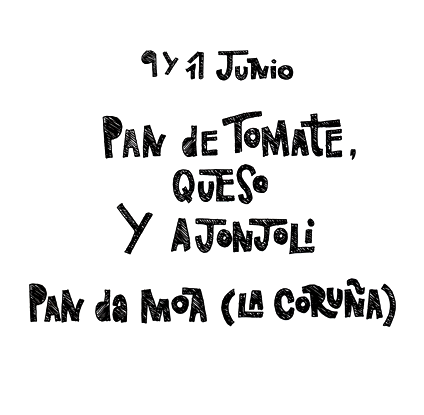 9 y 11 Junio
Pan de Tomate,
Queso
y Ajonjoli
Pan da Moa (La Coruña)